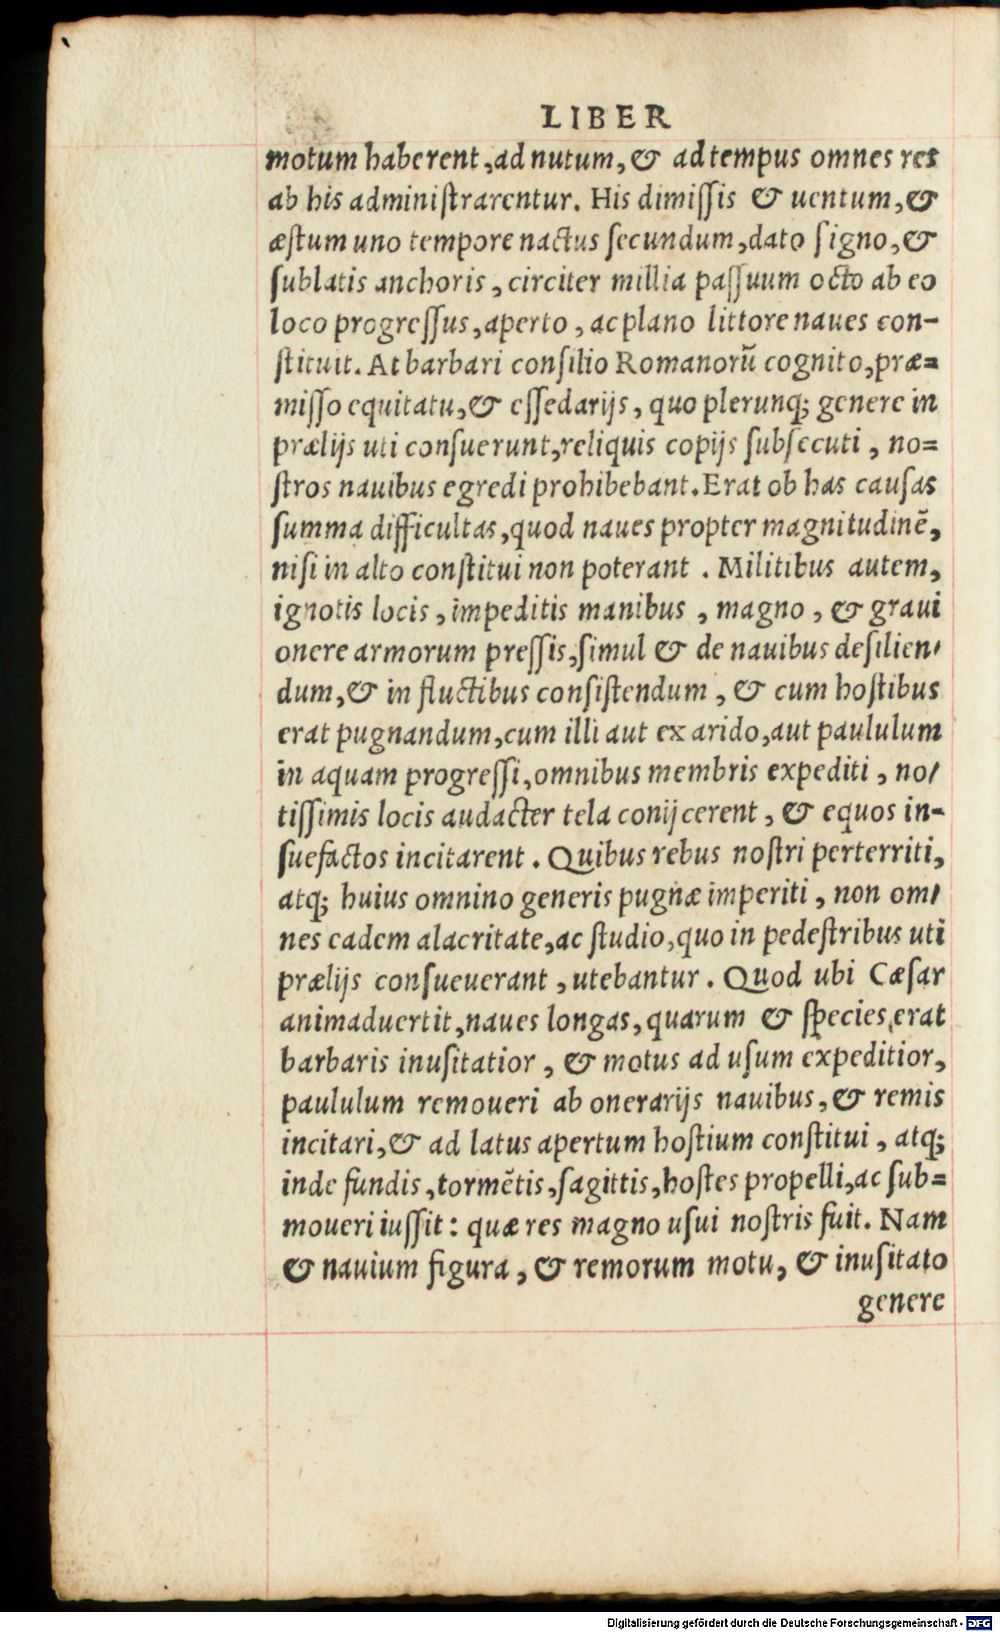 LIBER
motum haberent, ad nutum, & ad tempus omnes res
ab his adminiſtrarentur. His dimiſſis & uentum, &
æſtum uno tempore nactus ſecundum, dato ſigno, &
ſublatis anchoris, circiter millia paſſuum octo ab eo
loco progreſſus, aperto, ac plano littore naues con-
ſtituit. At barbari conſilio Romanorū cognito, præ=
miſſo equitatu, & eſſedarijs, quo plerunq; genere in
prælijs uti conſuerunt, reliquis copijs ſubſecuti, no=
ſtros nauibus egredi prohibebant. Erat ob has cauſas
ſumma difficultas, quod naues propter magnitudinē,
niſi in alto conſtitui non poterant. Militibus autem,
ignotis locis, impeditis manibus, magno, & graui
onere armorum preſſis, ſimul & de nauibus deſilien/
dum, & in fluctibus conſiſtendum, & cum hoſtibus
erat pugnandum, cum illi aut ex arido, aut paululum
in aquam progreſſi, omnibus membris expediti, no/
tiſſimis locis audacter tela conijcerent, & equos in-
ſuefactos incitarent. Quibus rebus noſtri perterriti,
atq; huius omnino generis pugnæ imperiti, non om/
nes eadem alacritate, ac ſtudio, quo in pedeſtribus uti
prælijs conſueuerant, utebantur. Quod ubi Cæſar
animaduertit, naues longas, quarum & ſpecies, erat
barbaris inuſitatior, & motus ad uſum expeditior,
paululum remoueri ab onerarijs nauibus, & remis
incitari, & ad latus apertum hoſtium conſtitui, atq;
inde fundis, tormētis, ſagittis, hoſtes propelli, ac ſub=
moueri iuſſit: quæ res magno uſui noſtris fuit. Nam
& nauium figura, & remorum motu, & inuſitato
genere
Digitalisierung gefördert durch die Deutsche Forschungsgemeinschaft - DFG